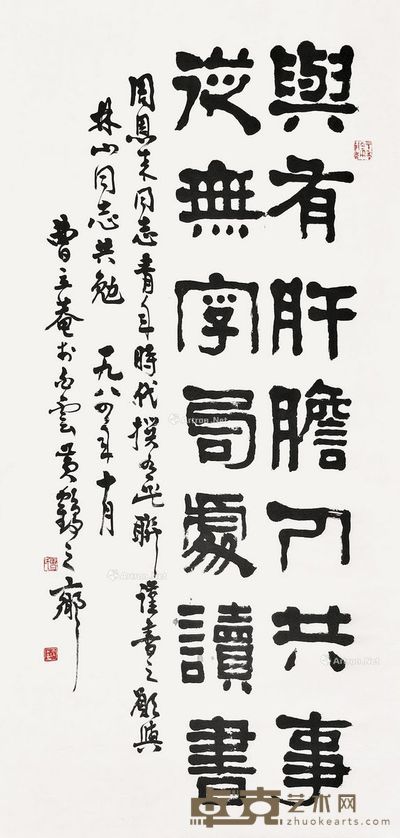 與有肝膽人共事
從無字句處讀書
周恩来同志青年時代撰此聯謹書之願與
林山同志共勉 一九八四年十月
曹立庵於白雲黄鶴之鄉
卓克艺术网
zhuokearts.com